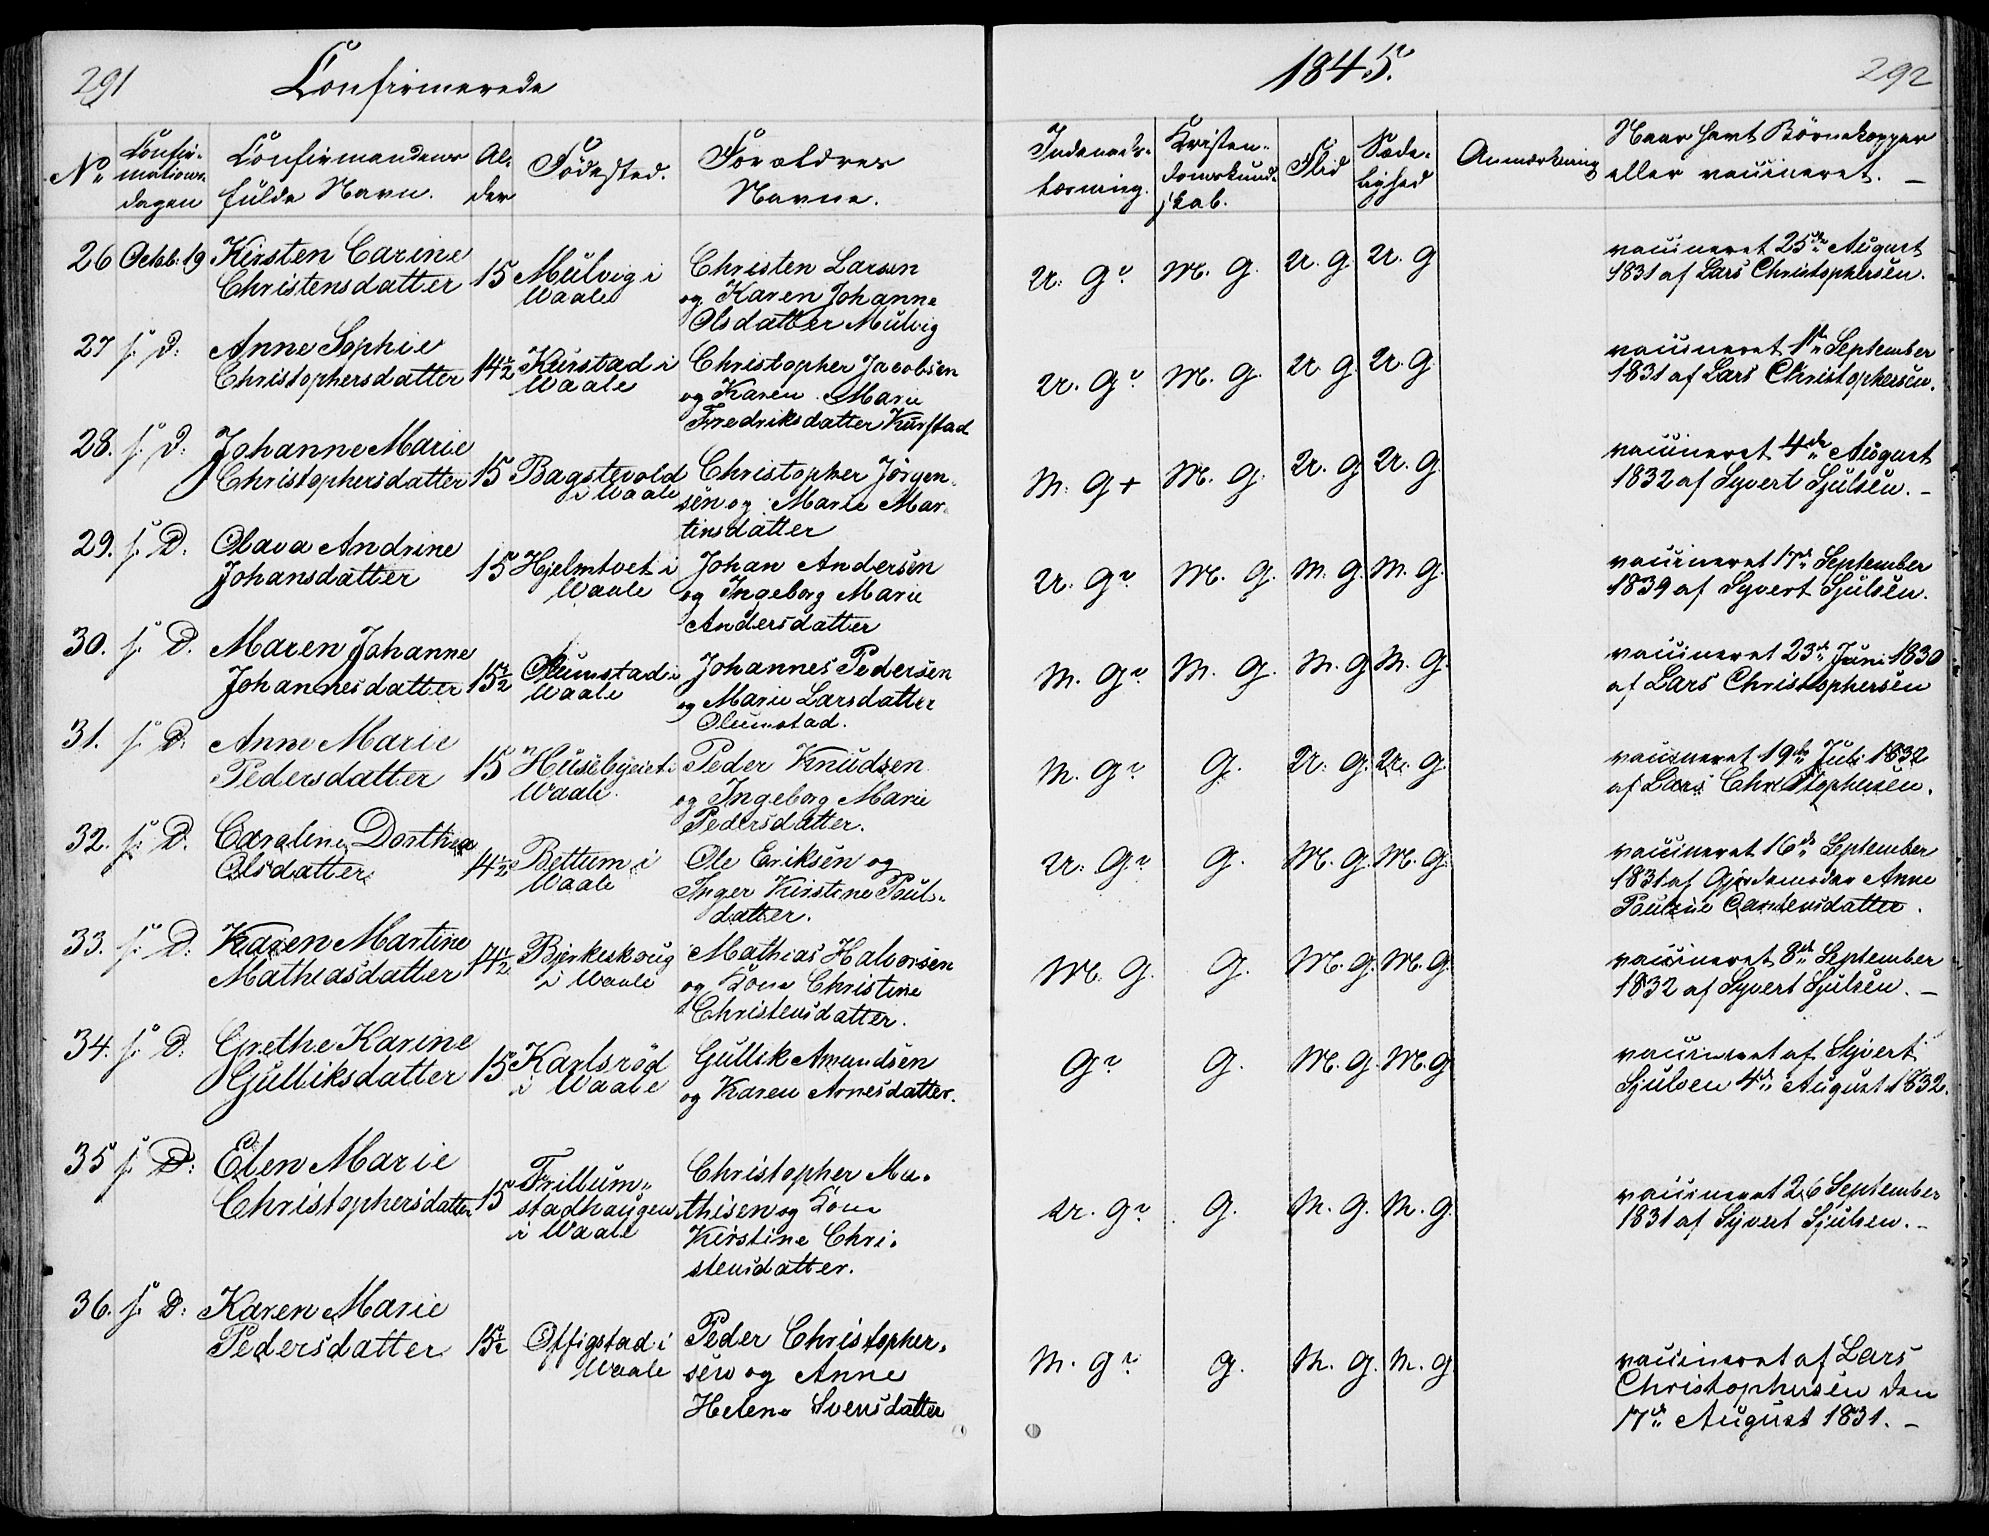 291
Confirmerede
1845.
292
No
Confir-
mations-
dagen
Confirmandens
fulde Navn.
Al-
der
Födested.
Forældres
Navne.
Indenads-
læsning.
Kristen-
domskund-
skab.
Flid
Sæde-
lighed
Anmærkning
Naar havt Börnekopper
eller vaccineret. —
26 Octb: 19 Kirsten Carine
Christensdatter
15 Mulvig i
Waale
Christen Larsen
og Karen Johanne
Olsdatter Mulvig
U. G. M. G. U. G U. G
vaccineret 25de August
1831 af Lars Christophersen.
27 s. D: Anne Sophie
Christophersdatter
14½ Kurstad i
Waale
Christopher Jacobsen
og Karen Marie
Fredriksdatter Kurstad
U. G. M. G. U. G. U. G
vaccineret 1ste September
1831 af Lars Christophersen.
28. s. D: Johanne Marie
Christophersdatter
15 Bagstevold
i Waale
Christopher Jörgen-
sen og Marie Mar-
tinsdatter
M: G+ M. G. U. G. U. G.
vaccineret 4de August
1832 af Syvert Sjulsen. —
29. s. D. Olava Andrine
Johansdatter
15 Hjelmtvet i
Waale
Johan Andersen
og Ingeborg Marie
Andersdatter
U. G. M. G. M. G. M. G.
vaccineret 17de September
1839 af Syvert Sjulsen.
30. s. D. Maren Johanne
Johannesdatter
15½ Olumstad i
Waale
Johannes Pedersen
og Marie Larsdatter
Olumstad.
M. G. M. G. M. G M. G.
vaccineret 23de Juni 1830
af Lars Christophersen
31. s. D: Anne Marie
Pedersdatter
15 Husebyeiet i
Waale.
Peder Knudsen
og Ingeborg Marie
Pedersdatter.
M. G. G. U. G. U. G.
vaccineret 19de Juli 1832
af Lars Christophersen.
32. s. D. Caroline Dorthea
Olsdatter
14½ Bettum i
Waale
Ole Eriksen og
Inger Kirstine Pouls-
datter.
U. G. G. M. G. M. G.
vaccineret 16de September
1831 af Gjordemoder Anne
Pouline
33. s. D. Karen Martine
Mathiasdatter
17½ Bjerkeskoug
i Waale
Mathias Halvorsen
og Lone Christine
Christensdatter.
M. G. G. M. G. M. G.
vaccineret 8de September
1832 af Syvert Sjulsen. —
34. s. D. Grethe Karine
Gulliksdatter
15 Karlsröd
i Waale
Gullik Amundsen
og Karen Arnesdatter.
G. G. M. G. M. G
vaccineret af Syvert
Sjulsen 4de August 1832.
35 s. D: Elen Marie
Christophersdatter
15 Frillum-
stadhaugen
i Waale
Christopher Ma-
thisen og Lone
Kirstine Chri-
stensdatter.
U. G. G. M. G. M. G.
vaccineret 26 September
1831 af Syvert Sjulsen. —
36. s. D: Karen Marie
Pedersdatter
15½ Offigstad i
Waale
Peder Christopher-
sen og Anne
Helene Svensdatter
M. G. G. M. G. M. G
vaccineret af Lars
Christophersen den
17de August 1831. —